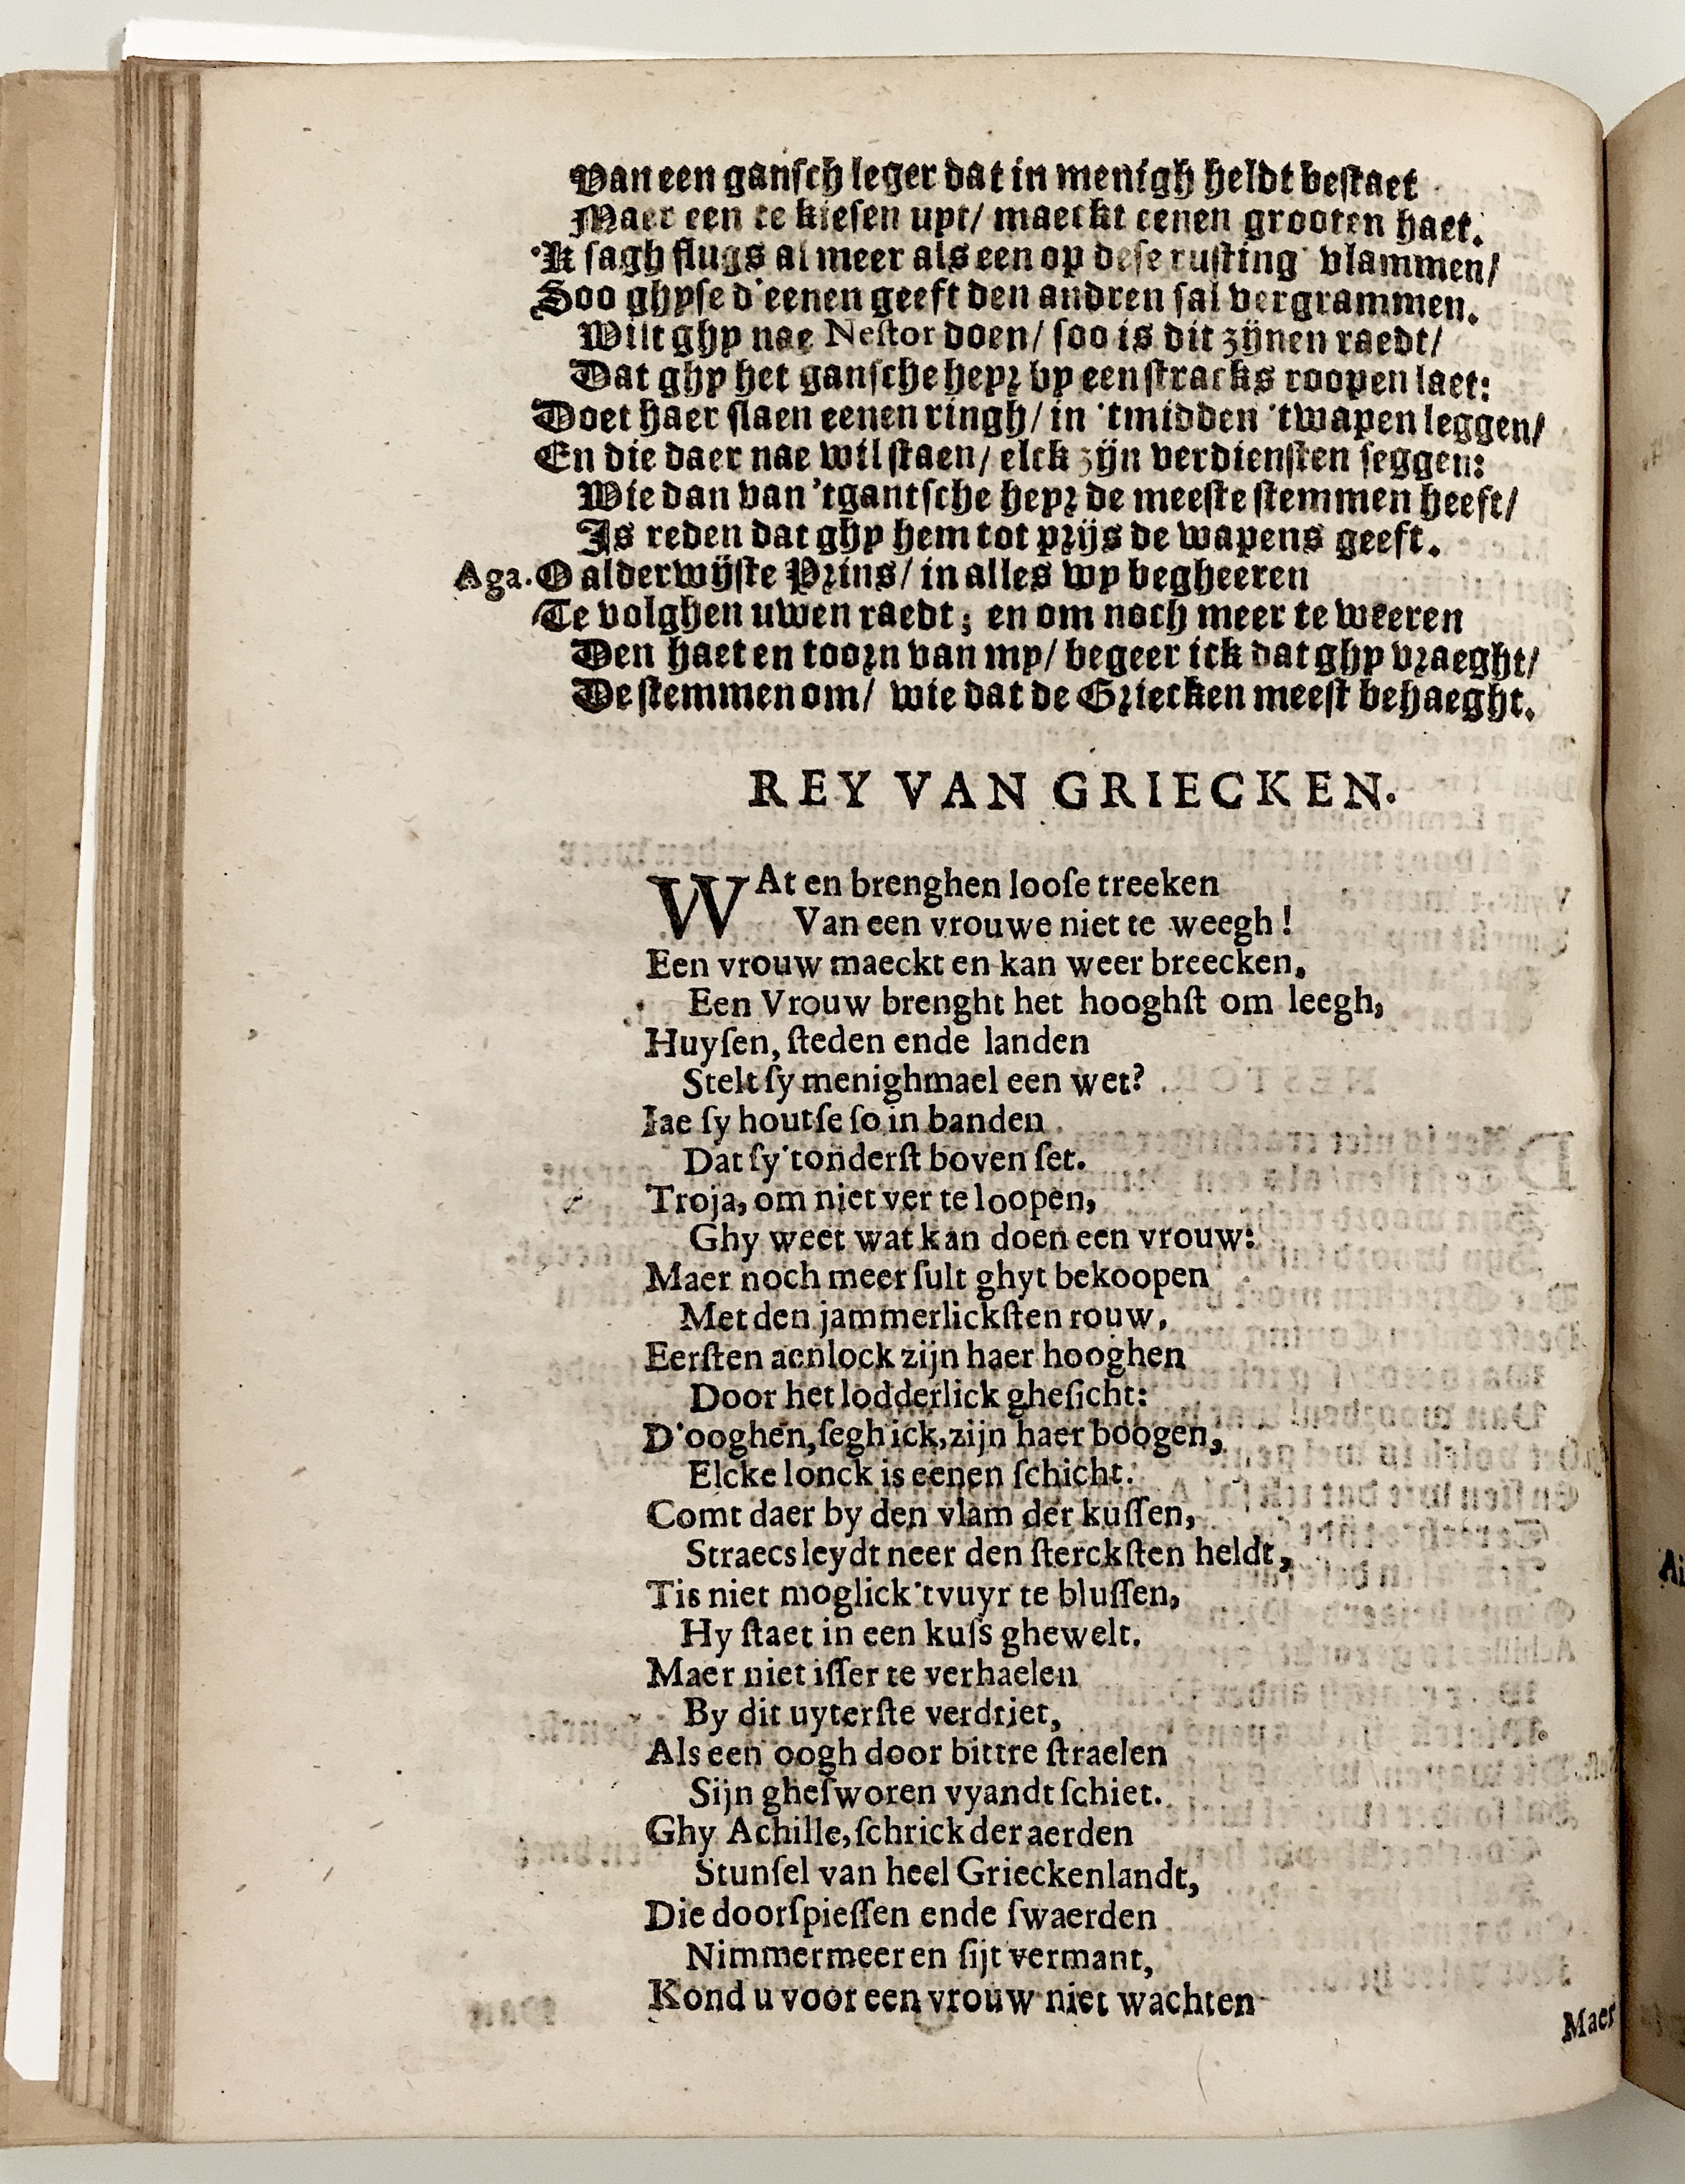 Van een gansch leger dat in menigh heldt bestaet
Maer een te kiesen uyt/ maeckt eenen grooten haet.
'K sagh flugs al meer als een op dese rusting vlammen/
Soo ghyse d'eenen geeft den andren sal vergrammen.
Wilt ghy nae Nestor doen/ soo is dit zijnen raedt/
Dat ghy het gansche heyr by een stracks roopen laet:
Doet haer slaen eenen ringh/ in 'tmidden 'twapen leggen/
En die daer nae wil staen/ elck zijn verdiensten seggen:
Wie dan van 'tgantsche heyr de meeste stemmen heeft/
Is reden dat ghy hem tot prijs de wapens geeft.
Aga. O alderwijste Prins/ in alles wy begheeren
Te volghen uwen raedt; en om noch meer te weeren
Den haet en toorn van my/ begeer ick dat ghy vraeght/
De stemmen om/ wie dat de Griecken meest behaeght.
REY VAN GRIECKEN.
WAt en brenghen loose treeken
Van een vrouwe niet te weegh!
Een vrouw maeckt en kan weer breecken,
Een Vrouw brenght het hooghst om leegh,
Huysen, steden ende landen
Stelt sy menighmael een wet?
Iae sy houtse so in banden
Dat sy 'tonderst boven set.
Troja, om niet ver te loopen,
Ghy weet wat kan doen een vrouw:
Maer noch meer sult ghyt bekoopen
Met den jammerlicksten rouw,
Eersten aenlock zijn haer hooghen
Door het lodderlick ghesicht:
D'ooghen, segh ick, zijn haer boogen,
Elcke lonck is eenen schicht.
Comt daer by den vlam der kussen,
Straecs leydt neer den stercksten heldt,
Tis niet moglick 'tvuyr te blussen,
Hy staet in een kuss ghewelt.
Maer niet isser te verhaelen
By dit uyterste verdriet,
Als een oogh door bittre straelen
Sijn ghesworen vyandt schiet.
Ghy Achille, schrick der aerden
Stunsel van heel Grieckenlandt,
Die door spiessen ende swaerden
Nimmermeer en sijt vermant,
Kond u voor een vrouw niet wachten
Maer